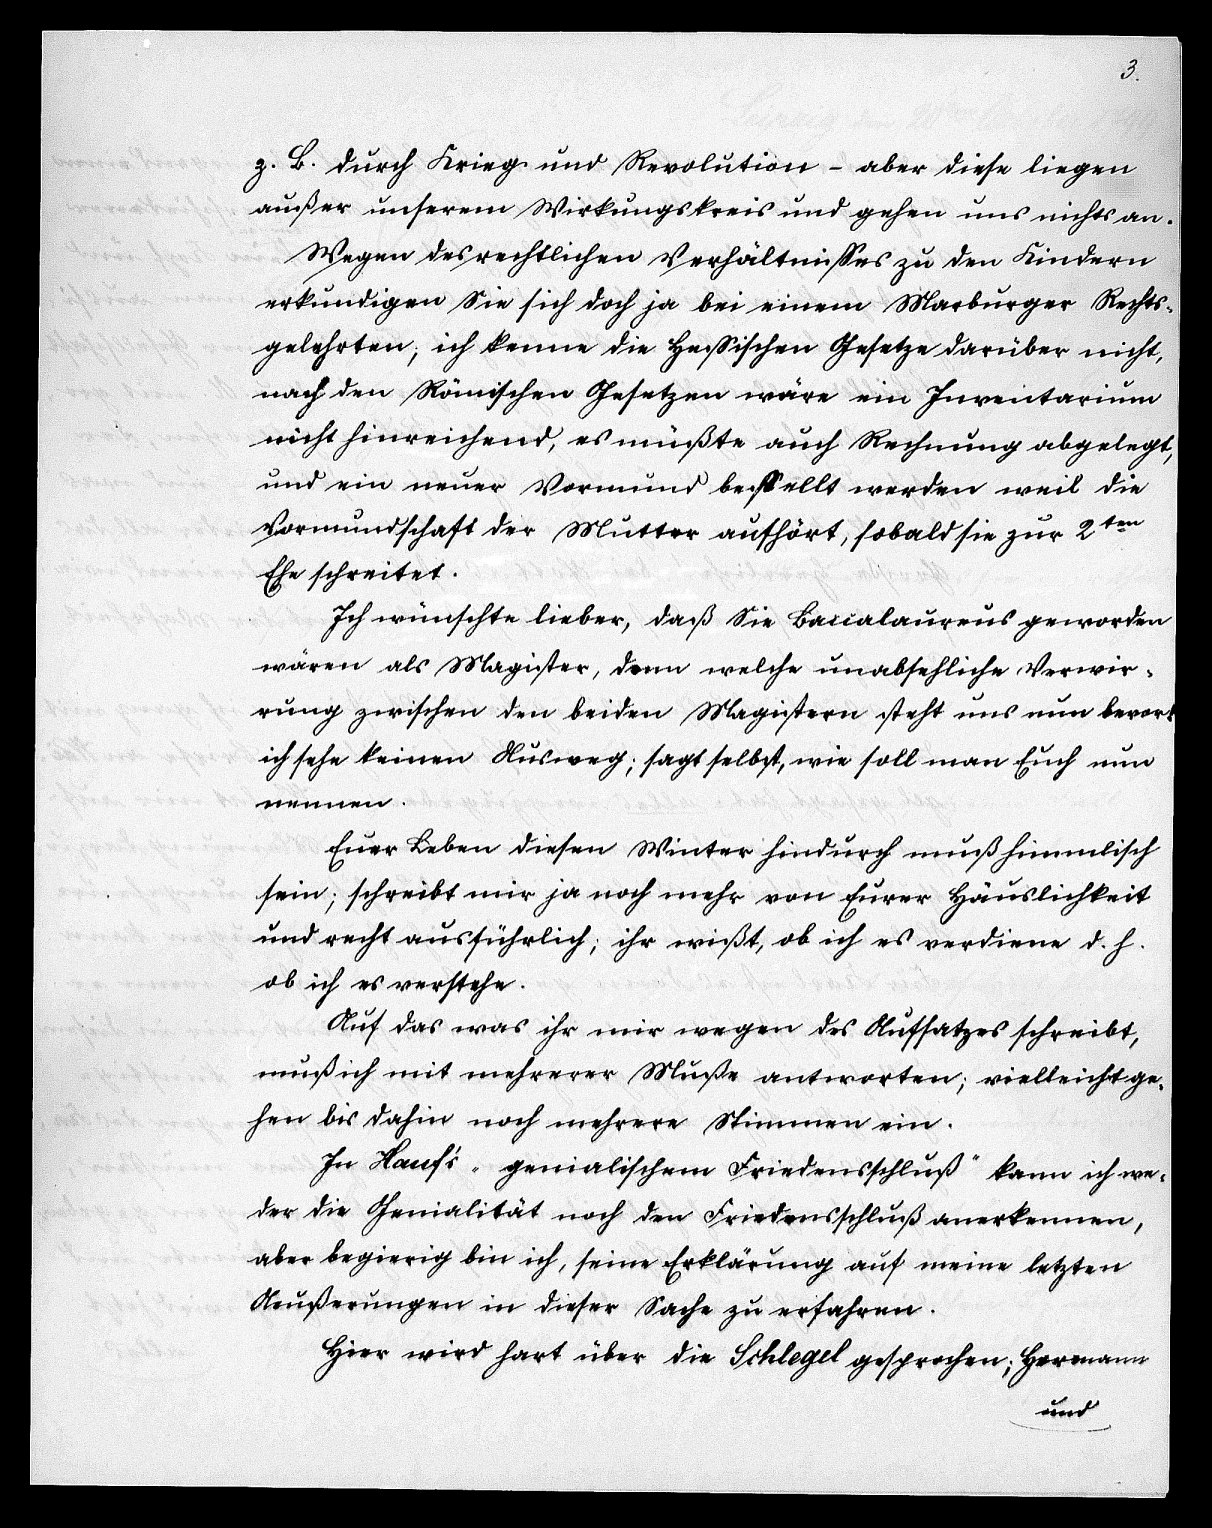 3.
z. B. durch Krieg und Revolution – aber diese liegen
außer unserem Wirkungskreis und gehen uns nichts an.
Wegen des rechtlichen Verhältnisses zu den Kindern
erkundigen Sie sich doch ja bei einem Marburger Rechts-
gelehrten; ich kenne die Hessischen Gesetze darüber nicht,
nach den Römischen Gesetzen wäre ein Inventarium
nicht hinreichend, es müßte auch Rechnung abgelegt,
und ein neuer Vormund bestellt werden weil die
Vormundschaft der Mutter aufhört, sobald sie zur 2ten
Ehe schreitet.
Ich wünschte lieber, daß Sie Baccalaureus geworden
wären als Magister, denn welche unabsehliche Verwir-
rung zwischen den beiden Magistern steht uns nun bevor
ich sehe keinen Ausweg; sagt selbst, wie soll man Euch nun
nennen.
Euer Leben diesen Winter hindurch muß himmlisch
sein; schreibt mir ja noch mehr von Eurer Häuslichkeit
und recht ausführlich; ihr wißt, ob ich es verdiene d. h.
ob ich es verstehe.
Auf das was ihr mir wegen des Aufsatzes schreibt,
muß ich mit mehrerer Muße antworten; vielleicht ge-
hen bis dahin noch mehrere Stimmen ein.
In Hauf's „genialischem Friedensschluß" kann ich we-
der die Genialität noch den Friedensschluß anerkennen,
aber begierig bin ich, seine Erklärung auf meine letzten
Äußerungen in dieser Sache zu erfahren.
Hier wird hart über die Schlegel gesprochen; Hermann
und